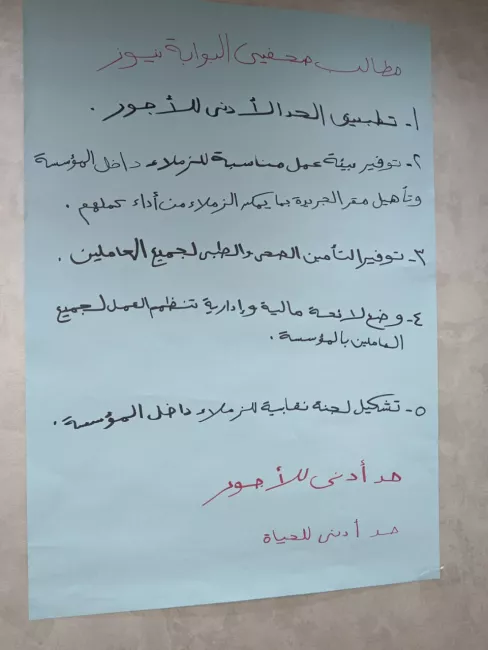 مطالب صحفيي البوابة نيوز
١- تطبيق الحد الأدنى للأجور .
٢- توفير بيئة عمل مناسبة للزملاء داخل المؤسسة
وتأهيل مقر الجريدة بما يمكن الزملاء من أداء عملهم .
٣- توفير التأمين الصحى والطبى لجميع العاملين .
٤- وضع لائحة مالية وإدارية تنظم العمل لجميع
العاملين بالمؤسسة .
٥- تشكيل لجنة نقابية للزملاء داخل المؤسسة .
حد أدنى للأجور
حد أدنى للحياة